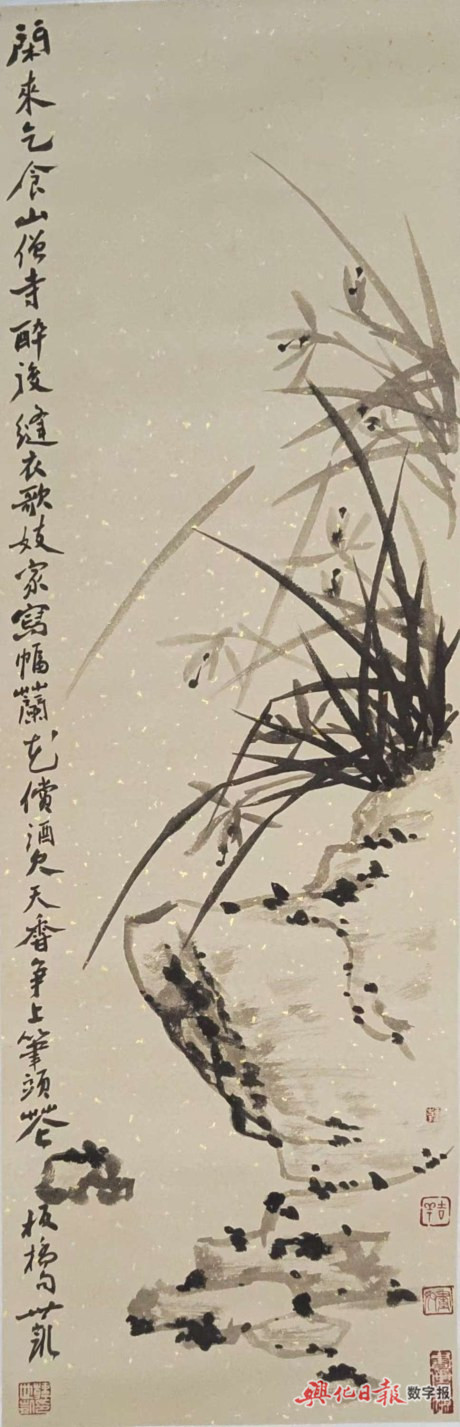 閑來乞食山僧寺醉後縫衣歌妓家寫幅蘭花償酒欠天香争上筆頭花
板橋句 世凱
興化日報 数字报